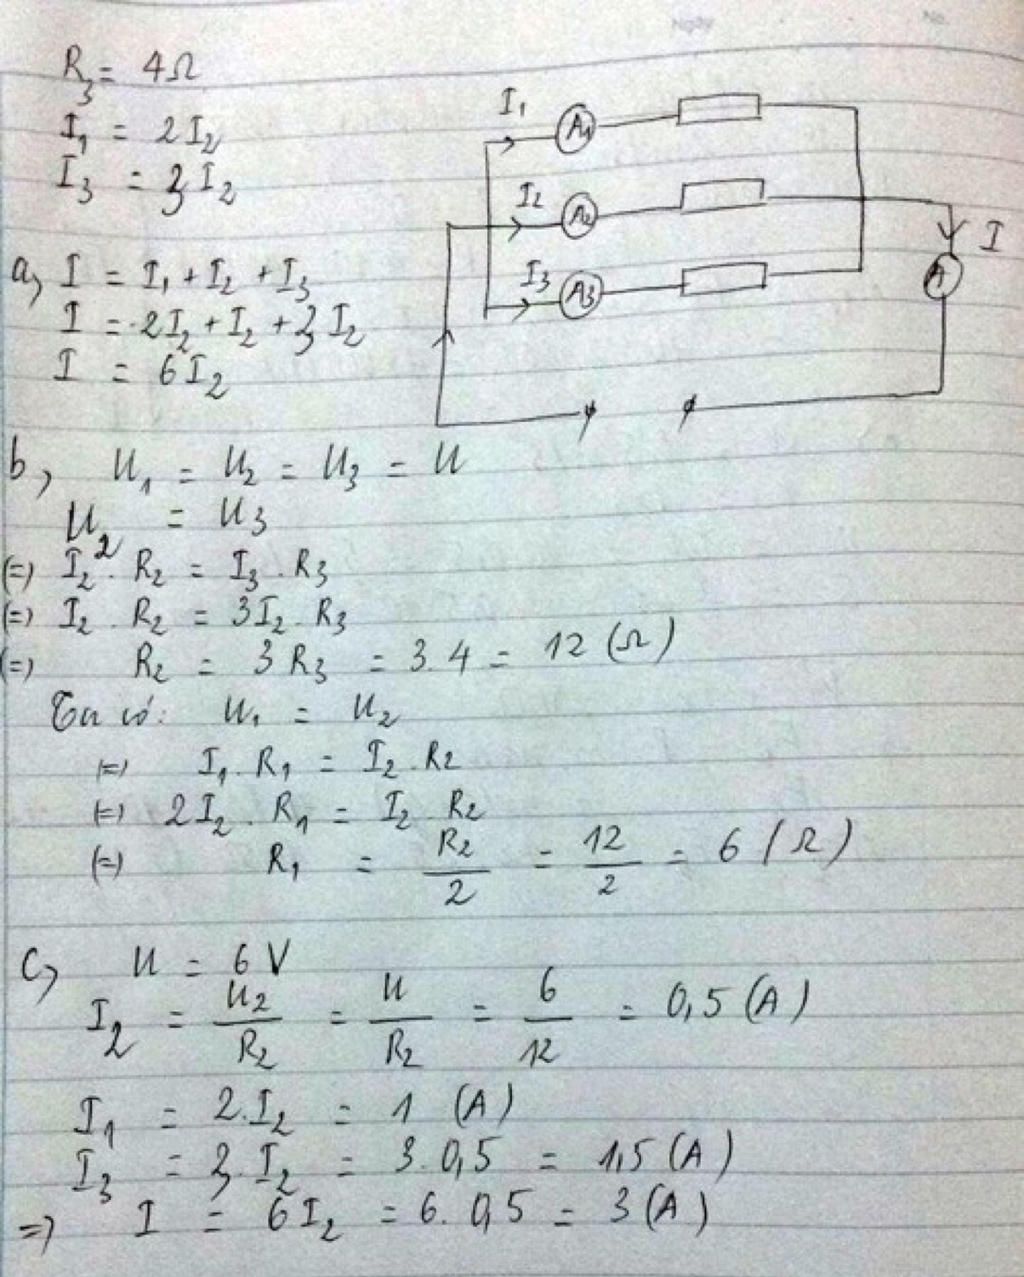 Ngày No.
R₃ = 4Ω
I₁ = 2I₂
I₃ = 3I₂
I₁
A₁
I₂
A₂
I₃
A₃
I
A
a, I = I₁ + I₂ + I₃
I = 2I₂ + I₂ + 3I₂
I = 6I₂
b, U₁ = U₂ = U₃ = U
U₂ = U₃
(=) I₂ . R₂ = I₃ . R₃
(=) I₂ . R₂ = 3I₂ . R₃
(=) R₂ = 3R₃ = 3.4 = 12 (Ω)
Ta có: U₁ = U₂
(=) I₁ . R₁ = I₂ . R₂
(=) 2I₂ . R₁ = I₂ . R₂
(=) R₁ = R₂/2 = 12/2 = 6 (Ω)
c, U = 6V
I₂ = U₂/R₂ = U/R₂ = 6/12 = 0,5 (A)
I₁ = 2.I₂ = 1 (A)
I₃ = 3.I₂ = 3.0,5 = 1,5 (A)
=> I = 6I₂ = 6.0,5 = 3 (A)